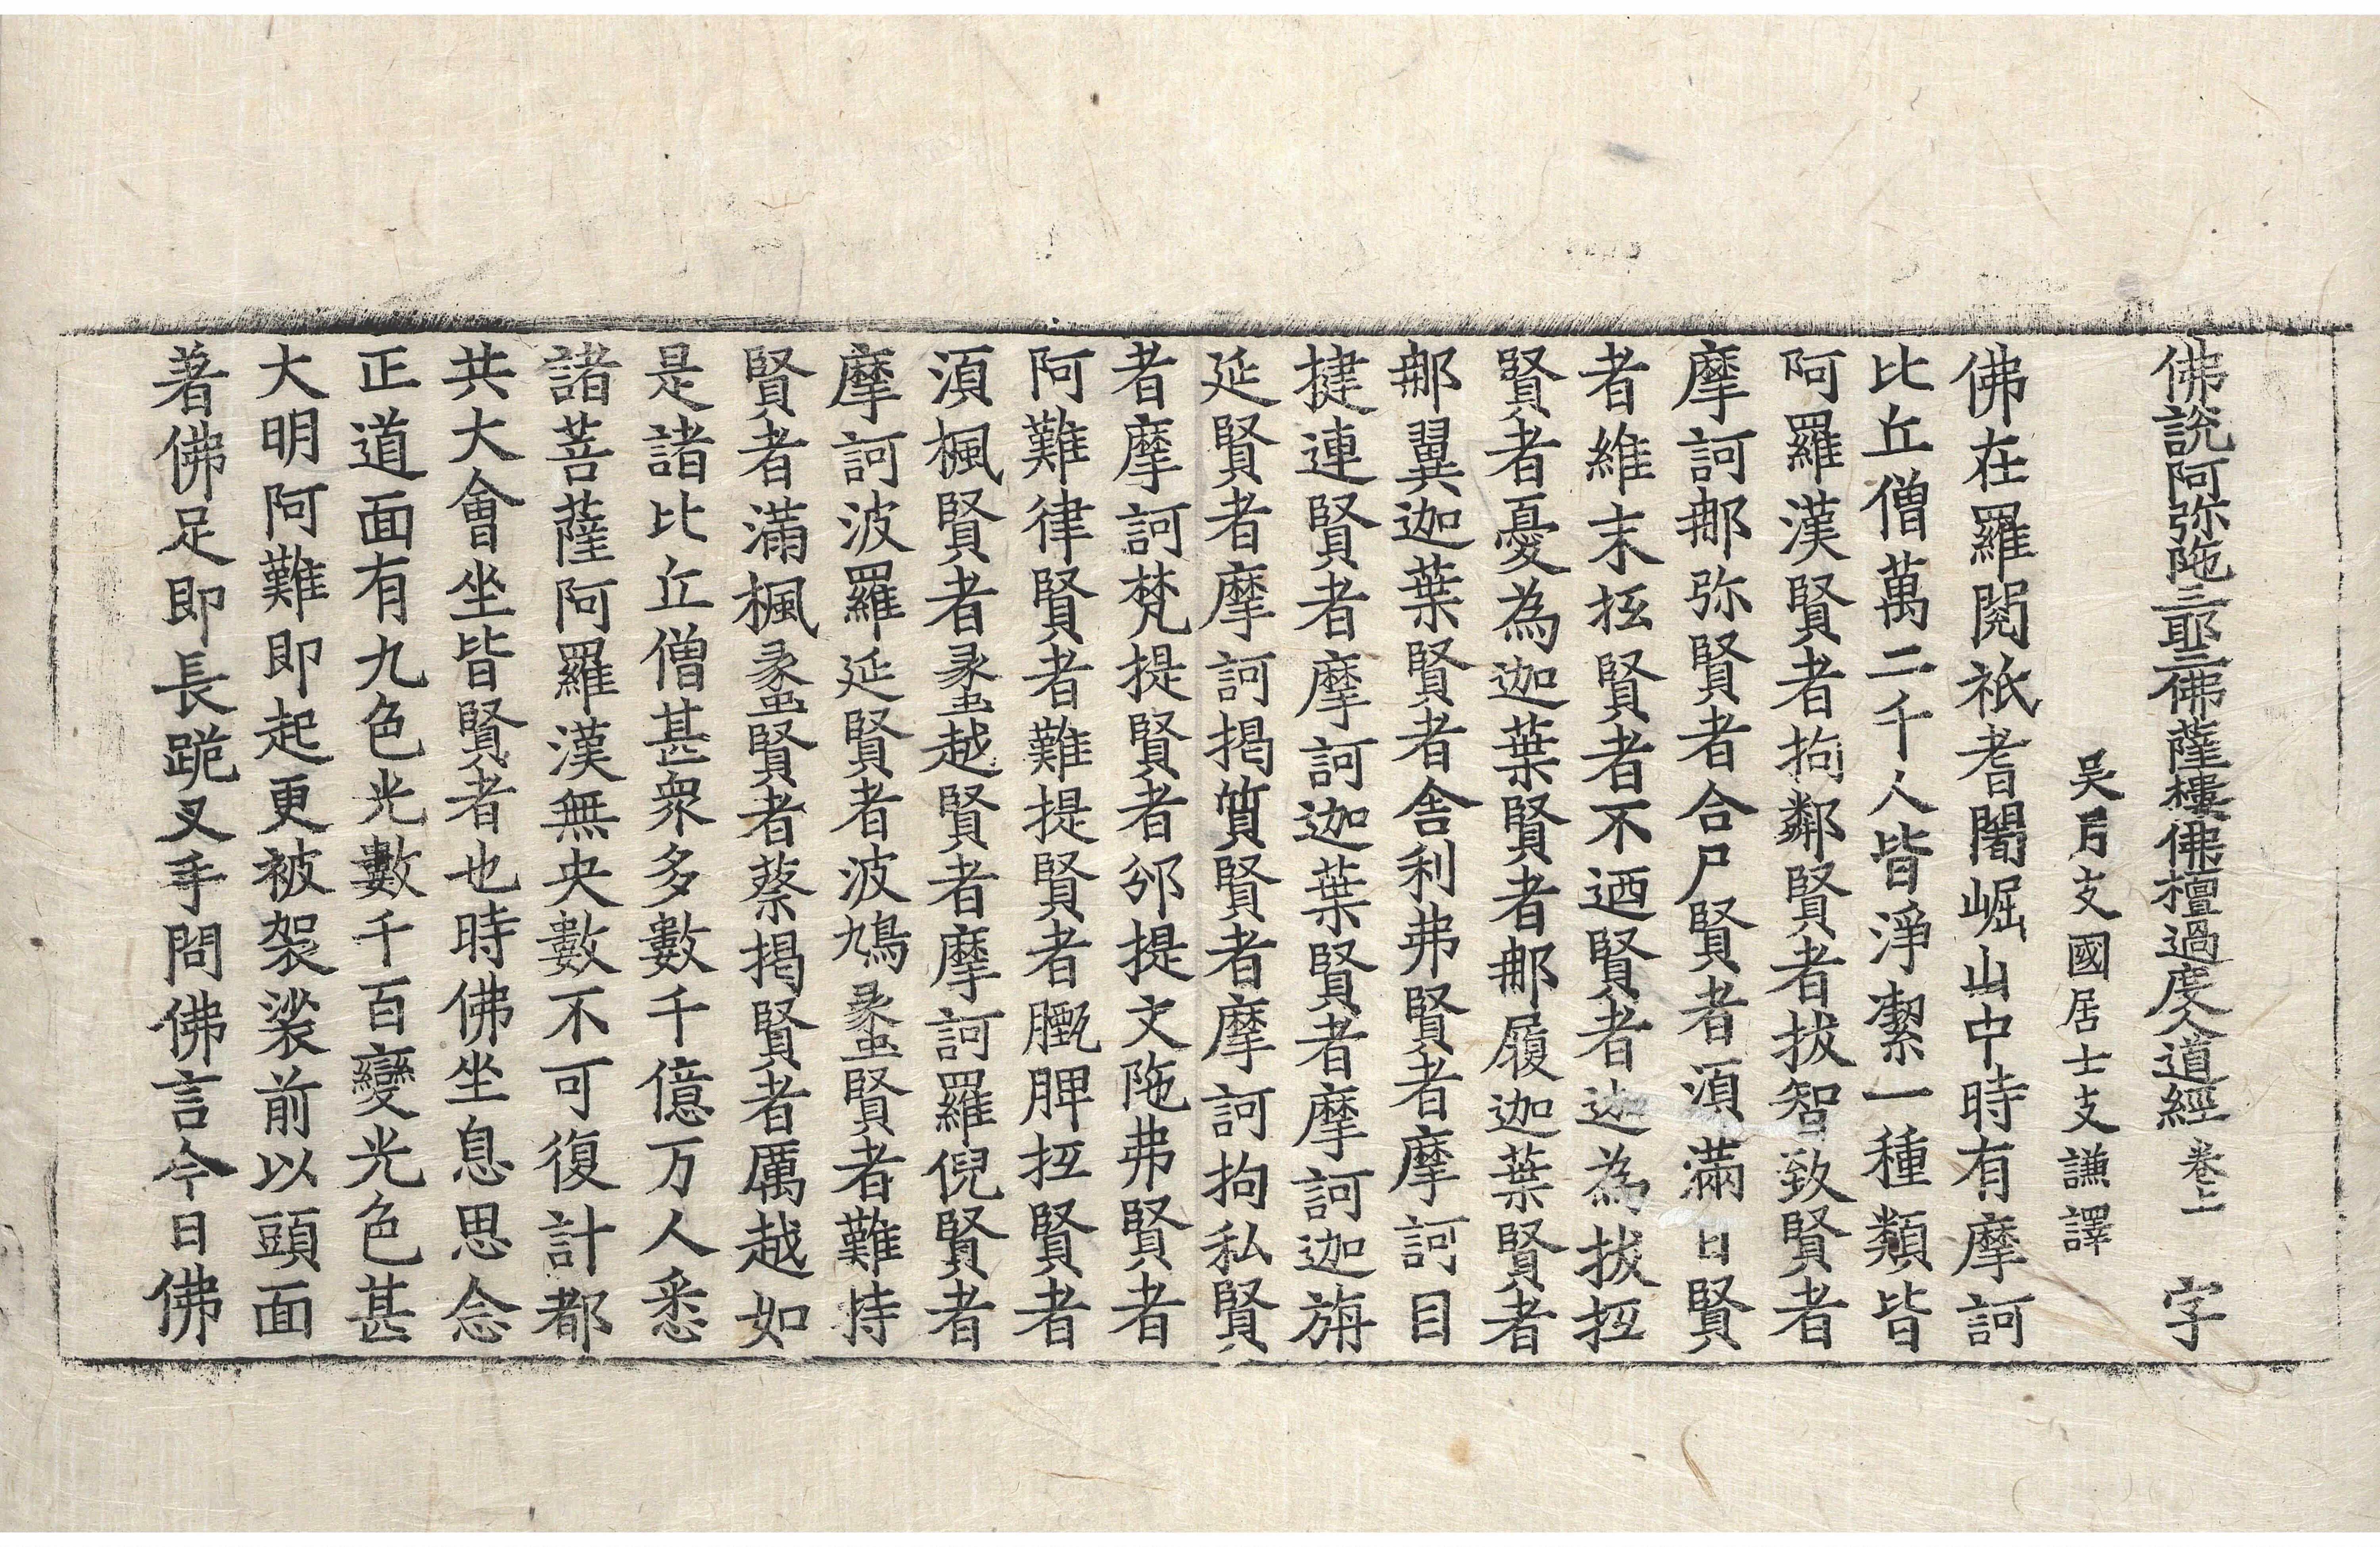 佛說阿弥陁三耶三佛薩樓佛檀過度人道經卷上 字
吳月支國居士支謙譯
佛在羅閱祇耆闍崛山中時有摩訶
比丘僧萬二千人皆淨潔一種類皆
阿羅漢賢者拘鄰賢者拔智致賢者
摩訶那弥賢者合尸賢者須滿日賢
者維末坻賢者不迺賢者迦為拔坻
賢者憂為迦葉賢者那履迦葉賢者
那翼迦葉賢者舍利弗賢者摩訶目
揵連賢者摩訶迦葉賢者摩訶迦旃
延賢者摩訶揭質賢者摩訶拘私賢
者摩訶梵提賢者邠提文陁弗賢者
阿難律賢者難提賢者䏙脾坻賢者
須楓賢者蠡越賢者摩訶羅倪賢者
摩訶波羅延賢者波鳩蠡賢者難持
賢者滿楓蠡賢者蔡揭賢者厲越如
是諸比丘僧甚衆多數千億万人悉
諸菩薩阿羅漢無央數不可復計都
共大會坐皆賢者也時佛坐息思念
正道面有九色光數千百變光色甚
大明阿難即起更被袈裟前以頭面
著佛足即長跪叉手問佛言今日佛